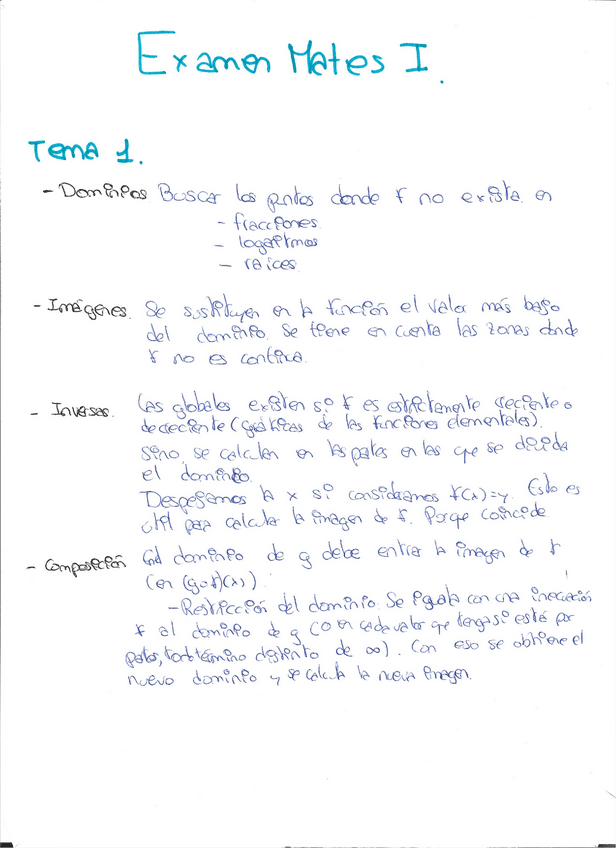 Examen Mates I.
Tema 1.
- Dominios Buscar los puntos donde f no exista en
- fracciones
- logaritmos
- raíces
- Imágenes. Se sustituyen en la función el valor más bajo
del dominio. Se tiene en cuenta las zonas donde
f no es continua.
- Inversas. Las globales existen si f es estrictamente creciente o
decreciente (gráficas de las funciones elementales).
Sino se calculan en las partes en las que se divida
el dominio.
Despejamos la x si consideramos f(x)=y. Esto es
útil para calcular la imagen de f. Porque coincide
- Composición dominio de g debe entrar la imagen de f
(en (g∘f)(x)).
- Restricción del dominio. Se iguala con una inecuación
f al dominio de g (o en cada valor que tenga si está por
partes, término distinto de ∞). Con eso se obtiene el
nuevo dominio y se calcula la nueva imagen.